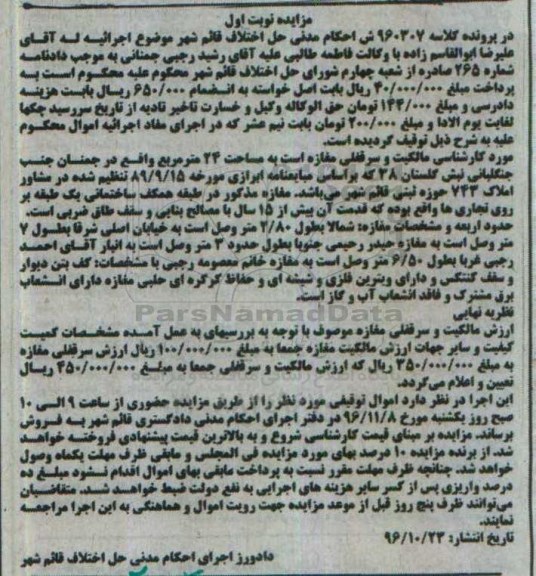 مزایده نوبت اول
در پرونده کلاسه ۹۶۰۳۰۷ ش احکام مدنی حل اختلاف قائم شهر موضوع اجرائیه له آقای
علیرضا ابوالقاسم زاده با وکالت فاطمه طالبی علیه آقای رشید رجبی جمنانی به موجب دادنامه
شماره ۲۶۵ صادره از شعبه چهارم شورای حل اختلاف قائم شهر محکوم علیه محکوم است به
پرداخت مبلغ ۴۰/۰۰۰/۰۰۰ ریال بابت اصل خواسته به انضمام ۶۵۰/۰۰۰ ریال بابت هزینه
دادرسی و مبلغ ۱۴۴/۰۰۰ تومان حق الوکاله وکیل و خسارت تاخیر تادیه از تاریخ سررسید چکها
لغایت یوم الادا و مبلغ ۲۰۰/۰۰۰ تومان بابت نیم عشر که در اجرای مفاد اجرائیه اموال محکوم
علیه به شرح ذیل توقیف گردیده است.
مورد کارشناسی مالکیت و سرقفلی مغازه است به مساحت ۲۴ مترمربع واقع در جمنان جنب
جنگلبانی نبش گلستان ۲۸ که براساس مبایعنامه ابرازی مورخه ۸۹/۹/۱۵ تنظیم شده در مشاور
املاک ۷۴۳ حوزه ثبتی قائم شهر می‌باشد. مغازه مذکور در طبقه همکف ساختمانی یک طبقه بر
روی تجاری ها واقع بوده که قدمت آن بیش از ۱۵ سال با مصالح بنایی و سقف طاق ضربی است.
حدود اربعه و مشخصات مغازه: شمالا بطول ۲/۸۰ متر وصل است به خیابان اصلی شرقا بطول ۷
متر وصل است به مغازه حیدر رحیمی جنوبا بطول حدود ۳ متر وصل است به انبار آقای احمد
رجبی غربا بطول ۶/۵۰ متر وصل است به مغازه خانم معصومه رجبی با مشخصات: کف بتن دیوار
و سقف گنتکس و دارای ویترین فلزی و شیشه ای و حفاظ کرکره ای حلبی مغازه دارای انشعاب
برق مشترک و فاقد انشعاب آب و گاز است.
نظریه نهایی
ParsNamadData
ارزش مالکیت و سرقفلی مغازه موصوف با توجه به بررسیهای به عمل آمده مشخصات کمیت
کیفیت و سایر جهات ارزش مالکیت مغازه جمعا به مبلغ ۱۰۰/۰۰۰/۰۰۰ ریال ارزش سرقفلی مغازه
به مبلغ ۳۵۰/۰۰۰/۰۰۰ ریال که ارزش مالکیت و سرقفلی جمعا به مبلغ ۴۵۰/۰۰۰/۰۰۰ ریال
تعیین و اعلام می‌گردد.
این اجرا در نظر دارد اموال توقیفی مورد نظر را از طریق مزایده حضوری از ساعت ۹ الی ۱۰
صبح روز یکشنبه مورخ ۹۶/۱۱/۸ در دفتر اجرای احکام مدنی دادگستری قائم شهر به فروش
برساند. مزایده بر مبنای قیمت کارشناسی شروع و به بالاترین قیمت پیشنهادی فروخته خواهد
شد. از برنده مزایده ۱۰ درصد بهای مورد مزایده فی المجلس و مابقی ظرف مهلت یکماه وصول
خواهد شد. چنانچه ظرف مهلت مقرر نسبت به پرداخت مابقی بهای اموال اقدام نشود مبلغ ده
درصد واریزی پس از کسر سایر هزینه های اجرایی به نفع دولت ضبط خواهد شد. متقاضیان
می‌توانند ظرف پنج روز قبل از موعد مزایده جهت رویت اموال و هماهنگی به این اجرا مراجعه
نمایند.
تاریخ انتشار: ۹۶/۱۰/۲۳
دادورز اجرای احکام مدنی حل اختلاف قائم شهر